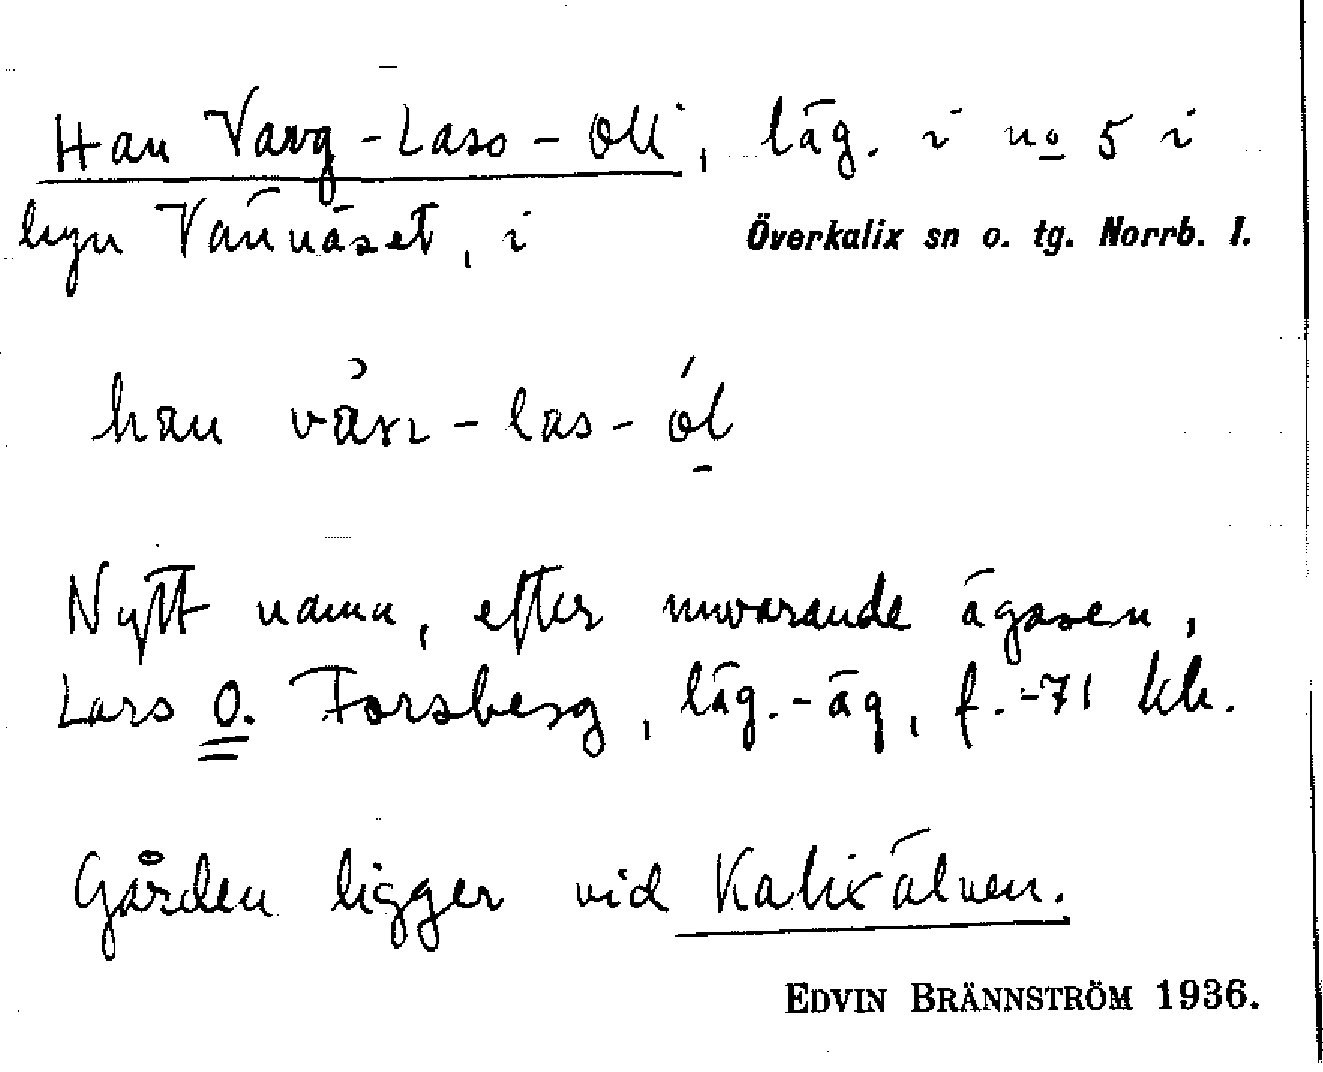 Han Varg-Lars-Oll, läg. i no 5 i
byn Vännäset, i Överkalix sn o. tg. Norrb. l.
han -las-
Nytt namn, efter nuvarande ägaren,
Lars O. Forsberg, läg.-äg, f. -71 hh.
Gården ligger vid Kalixälven.
EDVIN BRÄNNSTRÖM 1936.